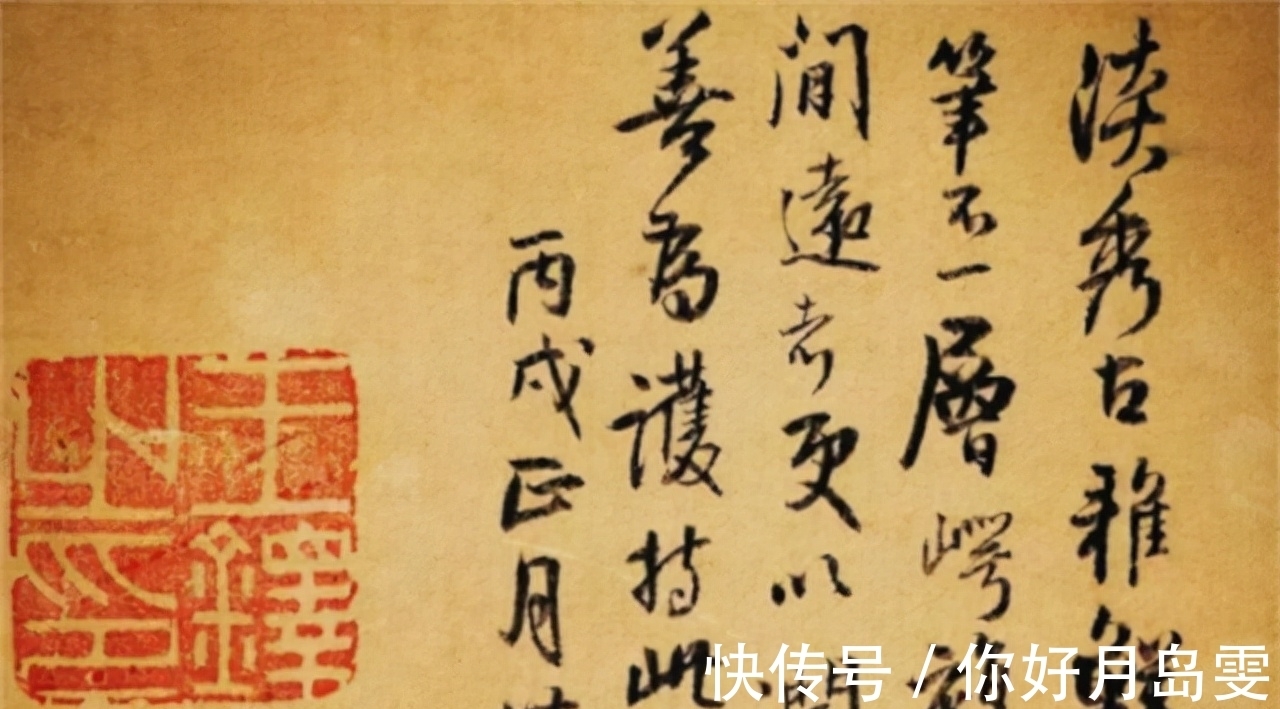 淡秀古雅
筆不一層崿
閒遠者更以
善為護持此
丙戌正月
王鐸之印
快传号 / 你好月岛雯